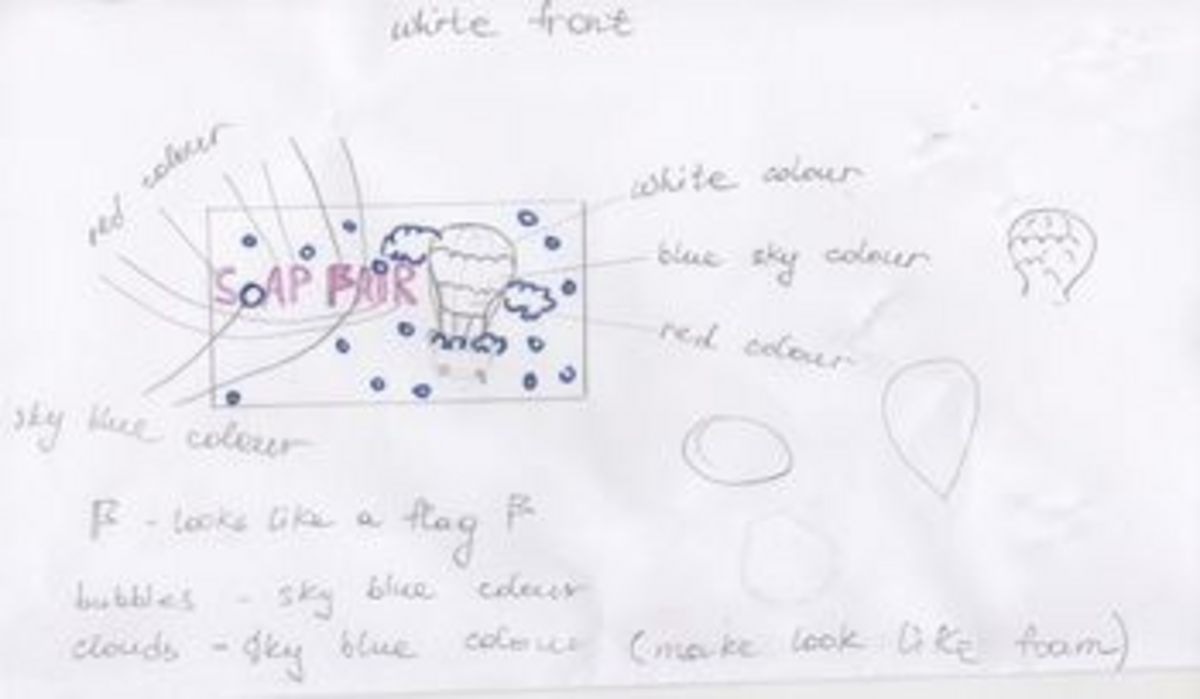 white front
red colour
white colour
SOAP FAIR
blue sky colour
red colour
sky blue colour
F - looks like a flag F
bubbles - sky blue colour
clouds - sky blue colour (make look like foam)